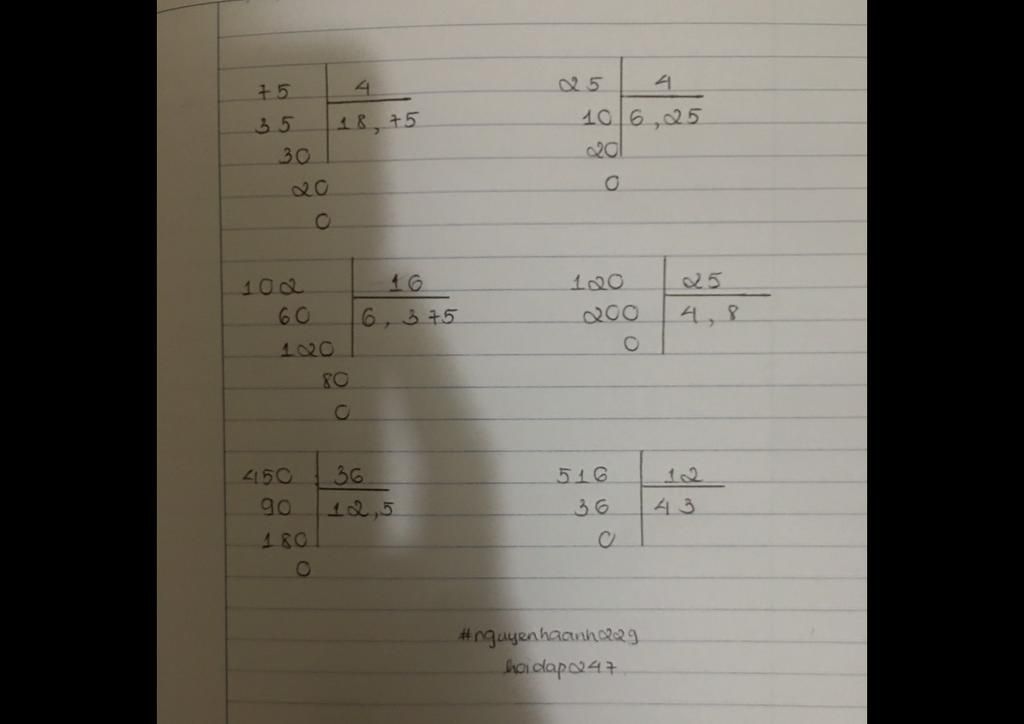 75 4
35 18,75
30
20
0
25 4
10 6,25
20
0
102 16
60 6,375
120
80
0
120 25
200 4,8
0
450 36
90 12,5
180
0
516 12
36 43
0
#nguyenhaanh229
hoidap247